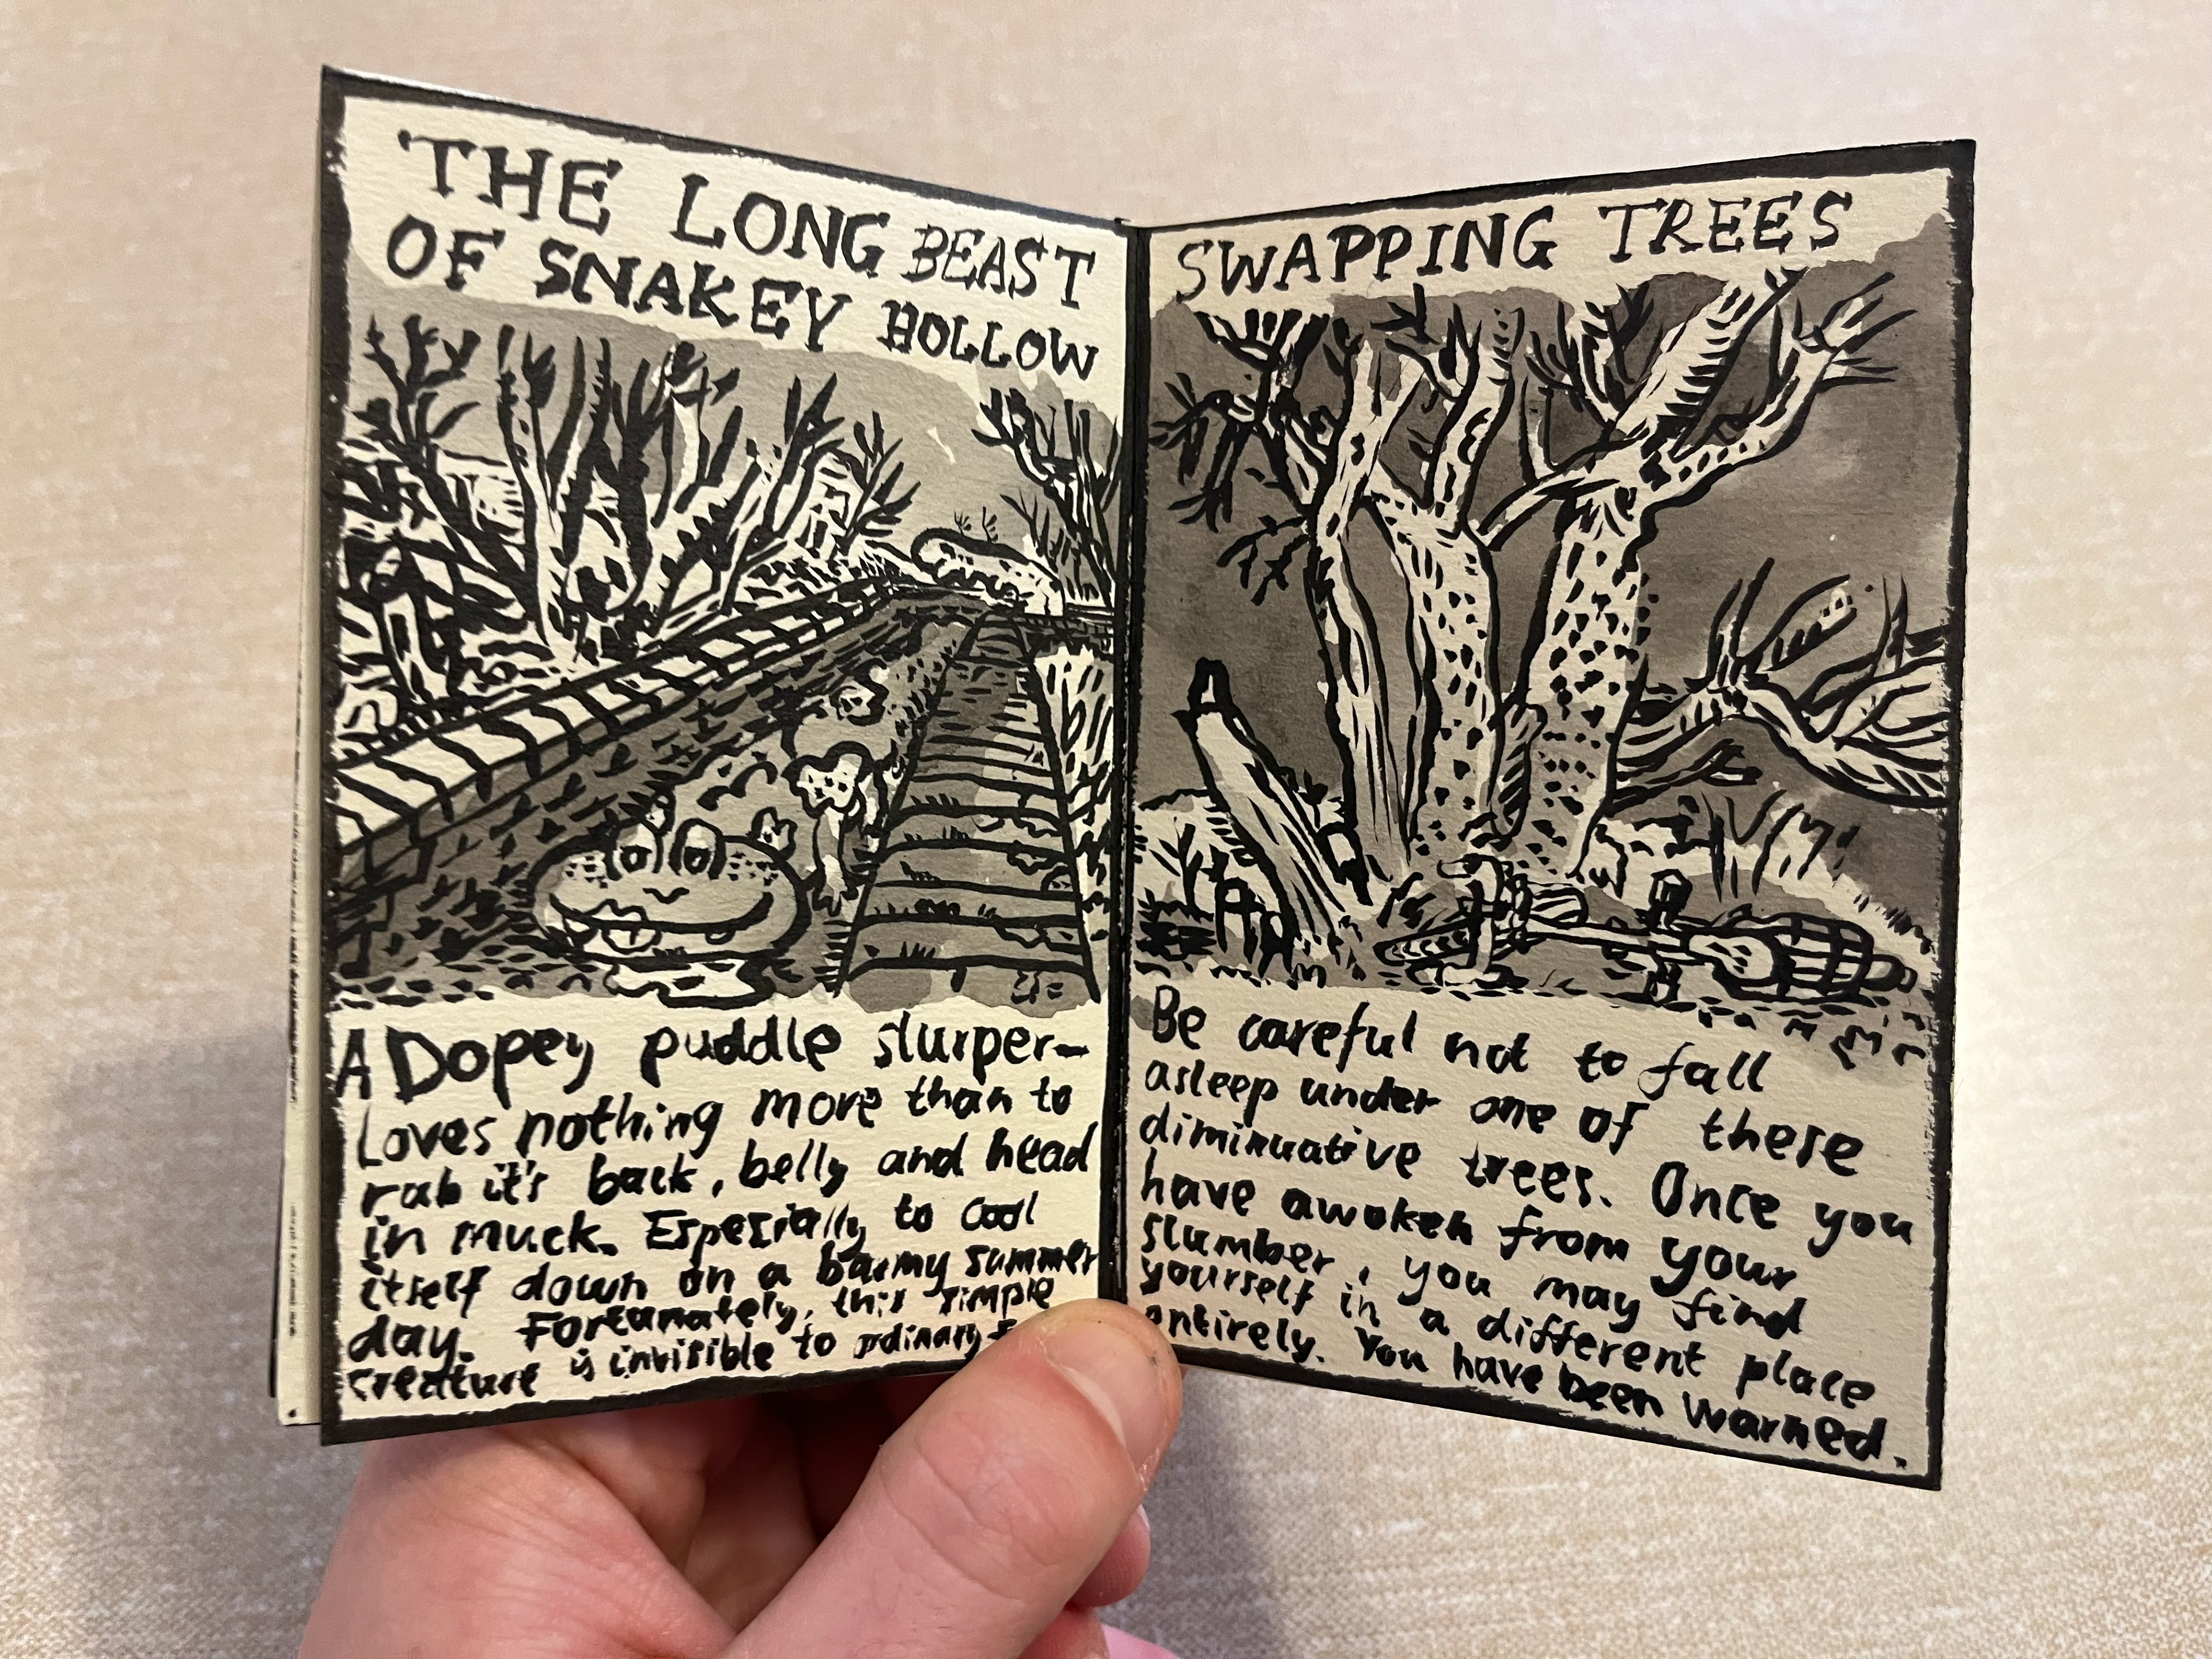 THE LONG BEAST
OF SNAKEY HOLLOW
A Dopey puddle slurper-
Loves nothing more than to
rub it's back, belly and head
in muck. Especially to cool
itself down on a barmy summer
day. Fortunately, this simple
creature is invisible to ordinary
SWAPPING TREES
Be careful not to fall
asleep under one of these
diminuative trees. Once you
have awoken from your
slumber, you may find
yourself in a different place
entirely. You have been warned.